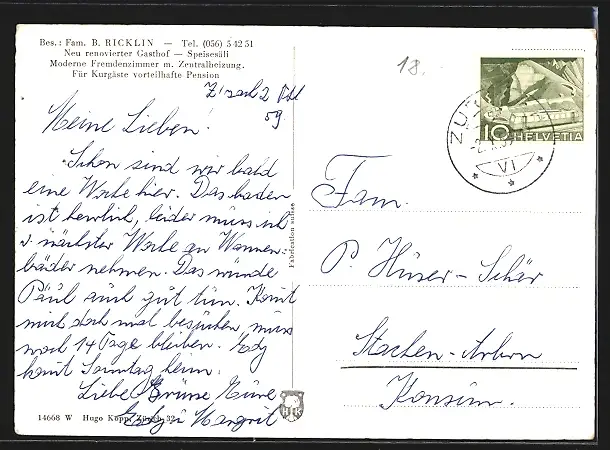 Bes.: Fam. B. RICKLIN — Tel. (056) 5 42 51
Neu renovierter Gasthof — Speisesäli
Moderne Fremdenzimmer m. Zentralheizung.
Für Kurgäste vorteilhafte Pension
Zurzach 2. Okt
59
Meine Lieben!
Schon sind wir bald
eine Woche hier. Das baden
ist herrlich, leider muss ich
nächster Woche an Wannen-
bäder nehmen. Das würde
Paul auch gut tun. Kommt
mich doch mal besuchen, muss
noch 14 Tage bleiben. Edy
kommt Sonntag heim.
Liebe Grüsse Eure
Edy u Margrit
14668 W Hugo Kopp, Zürich 32
Fabrication suisse
HK
18.
10 HELVETIA
ZUR
VI
Fam.
P. Hüser-Schär
Stachen-Arbon
Konsum.